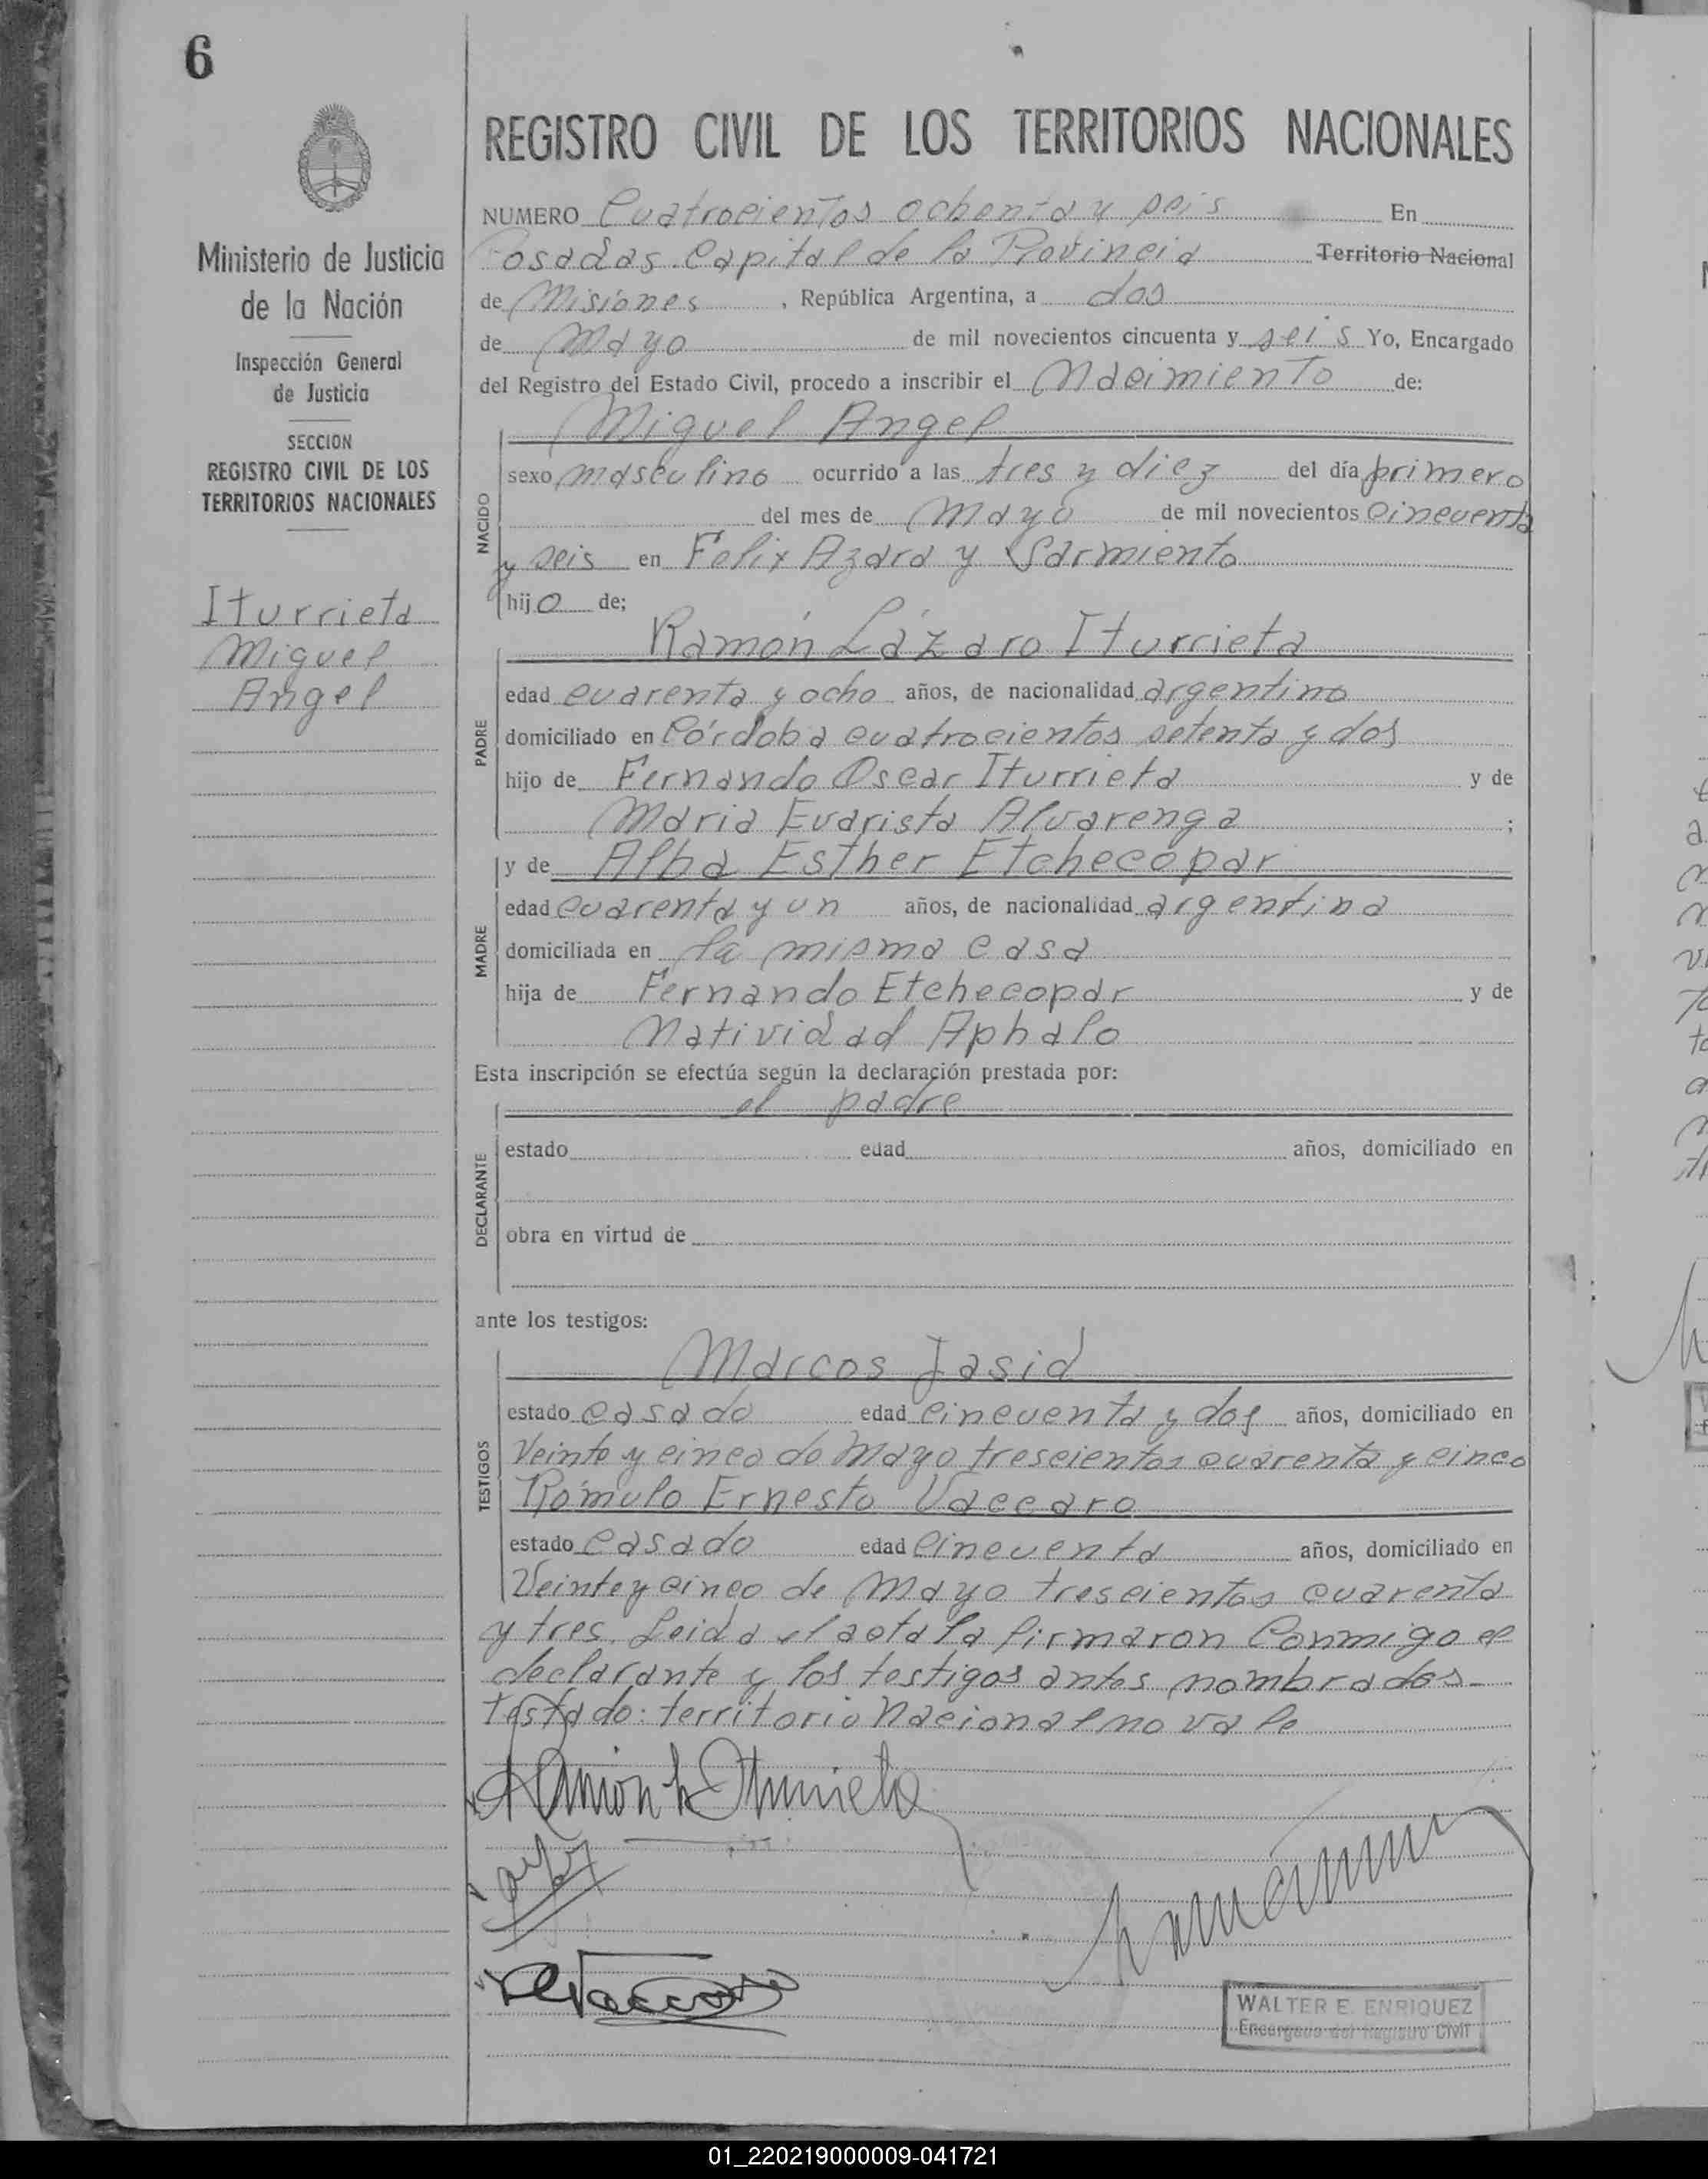 6
REGISTRO CIVIL DE LOS TERRITORIOS NACIONALES
Ministerio de Justicia
de la Nación
Inspección General
de Justicia
SECCION
REGISTRO CIVIL DE LOS
TERRITORIOS NACIONALES
Iturrieta
Miguel
Angel
NUMERO Cuatrocientos ochenta y seis En
Posadas. Capital de la Provincia Territorio Nacional
de Misiones, República Argentina, a dos
de Mayo de mil novecientos cincuenta y seis Yo, Encargado
del Registro del Estado Civil, procedo a inscribir el Nacimiento de:
Miguel Angel
NACIDO
sexo masculino ocurrido a las tres y diez del día primero
del mes de Mayo de mil novecientos cincuenta
y seis en Felix Azara y Sarmiento
hijo de;
Ramón Lázaro Iturrieta
PADRE
edad cuarenta y ocho años, de nacionalidad argentino
domiciliado en Córdoba cuatrocientos setenta y dos
hijo de Fernando Oscar Iturrieta y de
Maria Evarista Alvarenga ;
y de Alba Esther Etchecopar
MADRE
edad cuarenta y un años, de nacionalidad argentina
domiciliada en la misma casa
hija de Fernando Etchecopar y de
Natividad Aphalo
Esta inscripción se efectúa según la declaración prestada por:
el padre
DECLARANTE
estado edad años, domiciliado en
obra en virtud de
ante los testigos:
Marcos Jasid
TESTIGOS
estado casado edad cincuenta y dos años, domiciliado en
Veinte y cinco de Mayo trescientos cuarenta y cinco
Rómulo Ernesto Vaccaro
estado casado edad cincuenta años, domiciliado en
Veinte y cinco de Mayo trescientos cuarenta
y tres. Leida el acta la firmaron conmigo el
declarante y los testigos antes nombrados
Testado: territorio Nacional no vale
Ramón L Iturrieta
REVaccaro
WALTER E. ENRIQUEZ
Encargado del Registro Civil
01_220219000009-041721